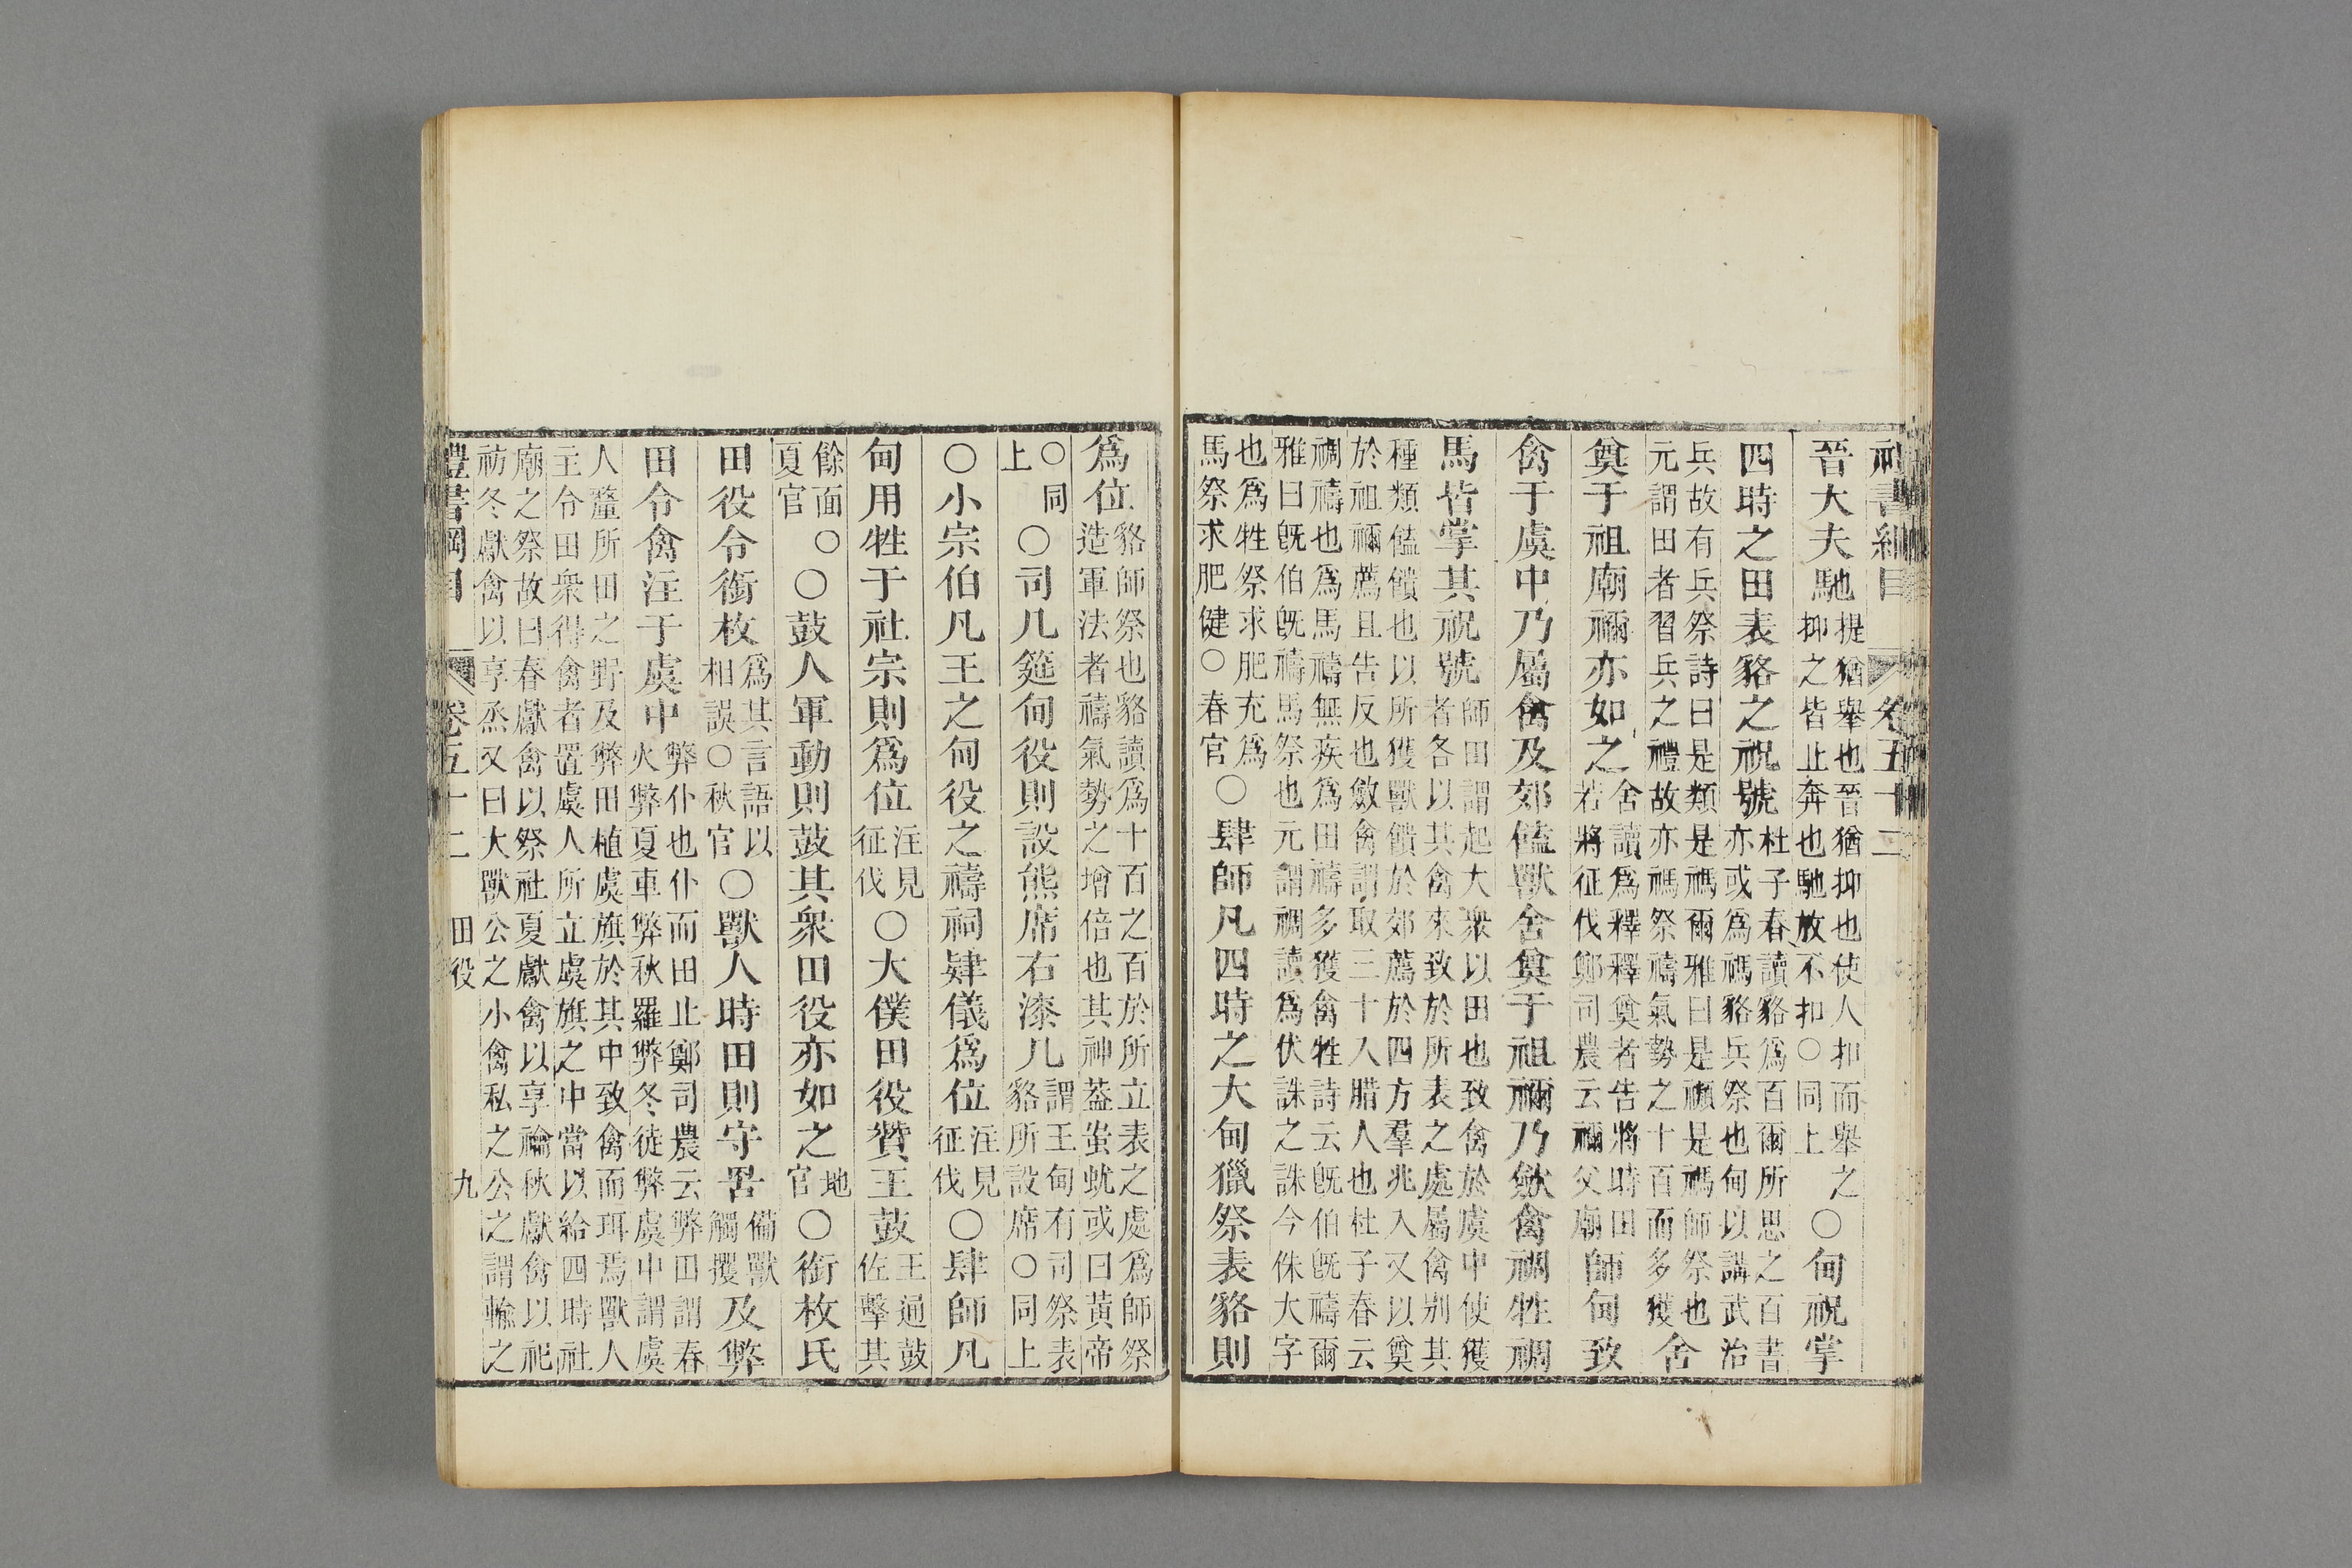 禮書綱目 卷五十二
晉大夫馳提猶舉也晉猶抑也使人扣而舉之抑之皆止奔也馳放不扣○同上○甸祝掌
四時之田表貉之祝號杜子春讀貉爲百爾所思之百書亦或爲禡貉兵祭也甸以講武治
兵故有兵祭詩曰是類是禡爾雅曰是類是禡師祭也元謂田者習兵之禮故亦禡祭禱氣勢之十百而多獲舍
奠于祖廟禰亦如之舍讀爲釋釋奠者告將時田若將征伐鄭司農云禰父廟師甸致
禽于虞中乃屬禽及郊饁獸舍奠于祖禰乃斂禽禂牲禂
馬皆掌其祝號師田謂起大衆以田也致禽於虞中使獲者各以其禽來致於所表之處屬禽別其
種類饁饋也以所獲獸饋於郊薦於四方羣兆入又以奠於祖禰薦且告反也斂禽謂取三十入腊人也杜子春云
禂禱也爲馬禱無疾爲田禱多獲禽牲詩云旣伯旣禱爾雅曰旣伯旣禱馬祭也元謂禂讀爲伏誅之誅今侏大字
也爲牲祭求肥充爲馬祭求肥健○春官○肆師凡四時之大甸獵祭表貉則
爲位貉師祭也貉讀爲十百之百於所立表之處爲師祭造軍法者禱氣勢之增倍也其神葢蚩蚘或曰黃帝
○同上○司几筵甸役則設熊席右漆几謂王甸有司祭表貉所設席○同上
○小宗伯凡王之甸役之禱祠肄儀爲位注見征伐○肆師凡
甸用牲于社宗則爲位注見征伐○大僕田役贊王鼓王通鼓佐擊其
餘面○夏官○鼓人軍動則鼓其衆田役亦如之地官○銜枚氏
田役令銜枚爲其言語以相誤○秋官○獸人時田則守罟備獸觸攫及弊
田令禽注于虞中弊仆也仆而田止鄭司農云弊田謂春火弊夏車弊秋羅弊冬徒弊虞中謂虞
人釐所田之野及弊田植虞旗於其中致禽而珥焉獸人主令田衆得禽者置虞人所立虞旗之中當以給四時社
廟之祭故曰春獻禽以祭社夏獻禽以享禴秋獻禽以祀祊冬獻禽以享烝又曰大獸公之小禽私之公之謂輸之
禮書綱目 卷五十二 田役 九